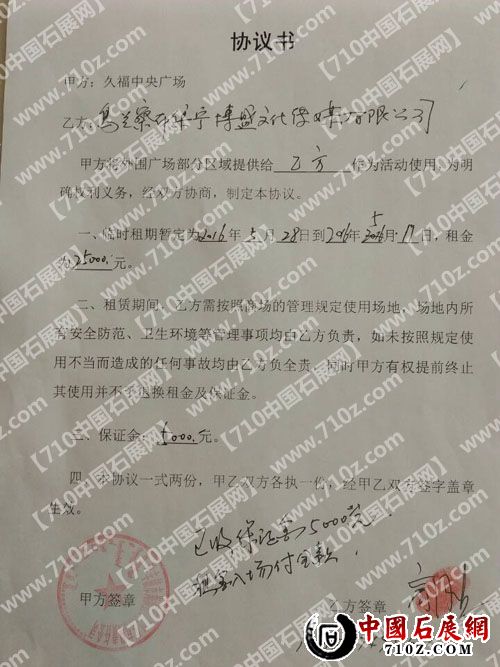 协议书
甲方：久福中央广场
乙方：乌兰察布集宁博盟文化传媒有限公司
甲方将外围广场部分区域提供给 乙方 作为活动使用，为明
确权利义务，经双方协商，制定本协议。
一、临时租期暂定为2016年5月28日到2016年 月17日，租金
为25000.元。
二、租赁期间，乙方需按照商场的管理规定使用场地，场地内所
有安全防范、卫生环境等管理事项均由乙方负责，如未按照规定使
用不当而造成的任何事故均由乙方负全责。同时甲方有权提前终止
其使用并不予退换租金及保证金。
三、保证金：5000.元。
四、本协议一式两份，甲乙双方各执一份，经甲乙双方签字盖章
生效。
已收保证金5000元.
租金入场付全款.
甲方签章
乙方签章
【710中国石展网】
www.710z.com
中国石展网
710Z.COM